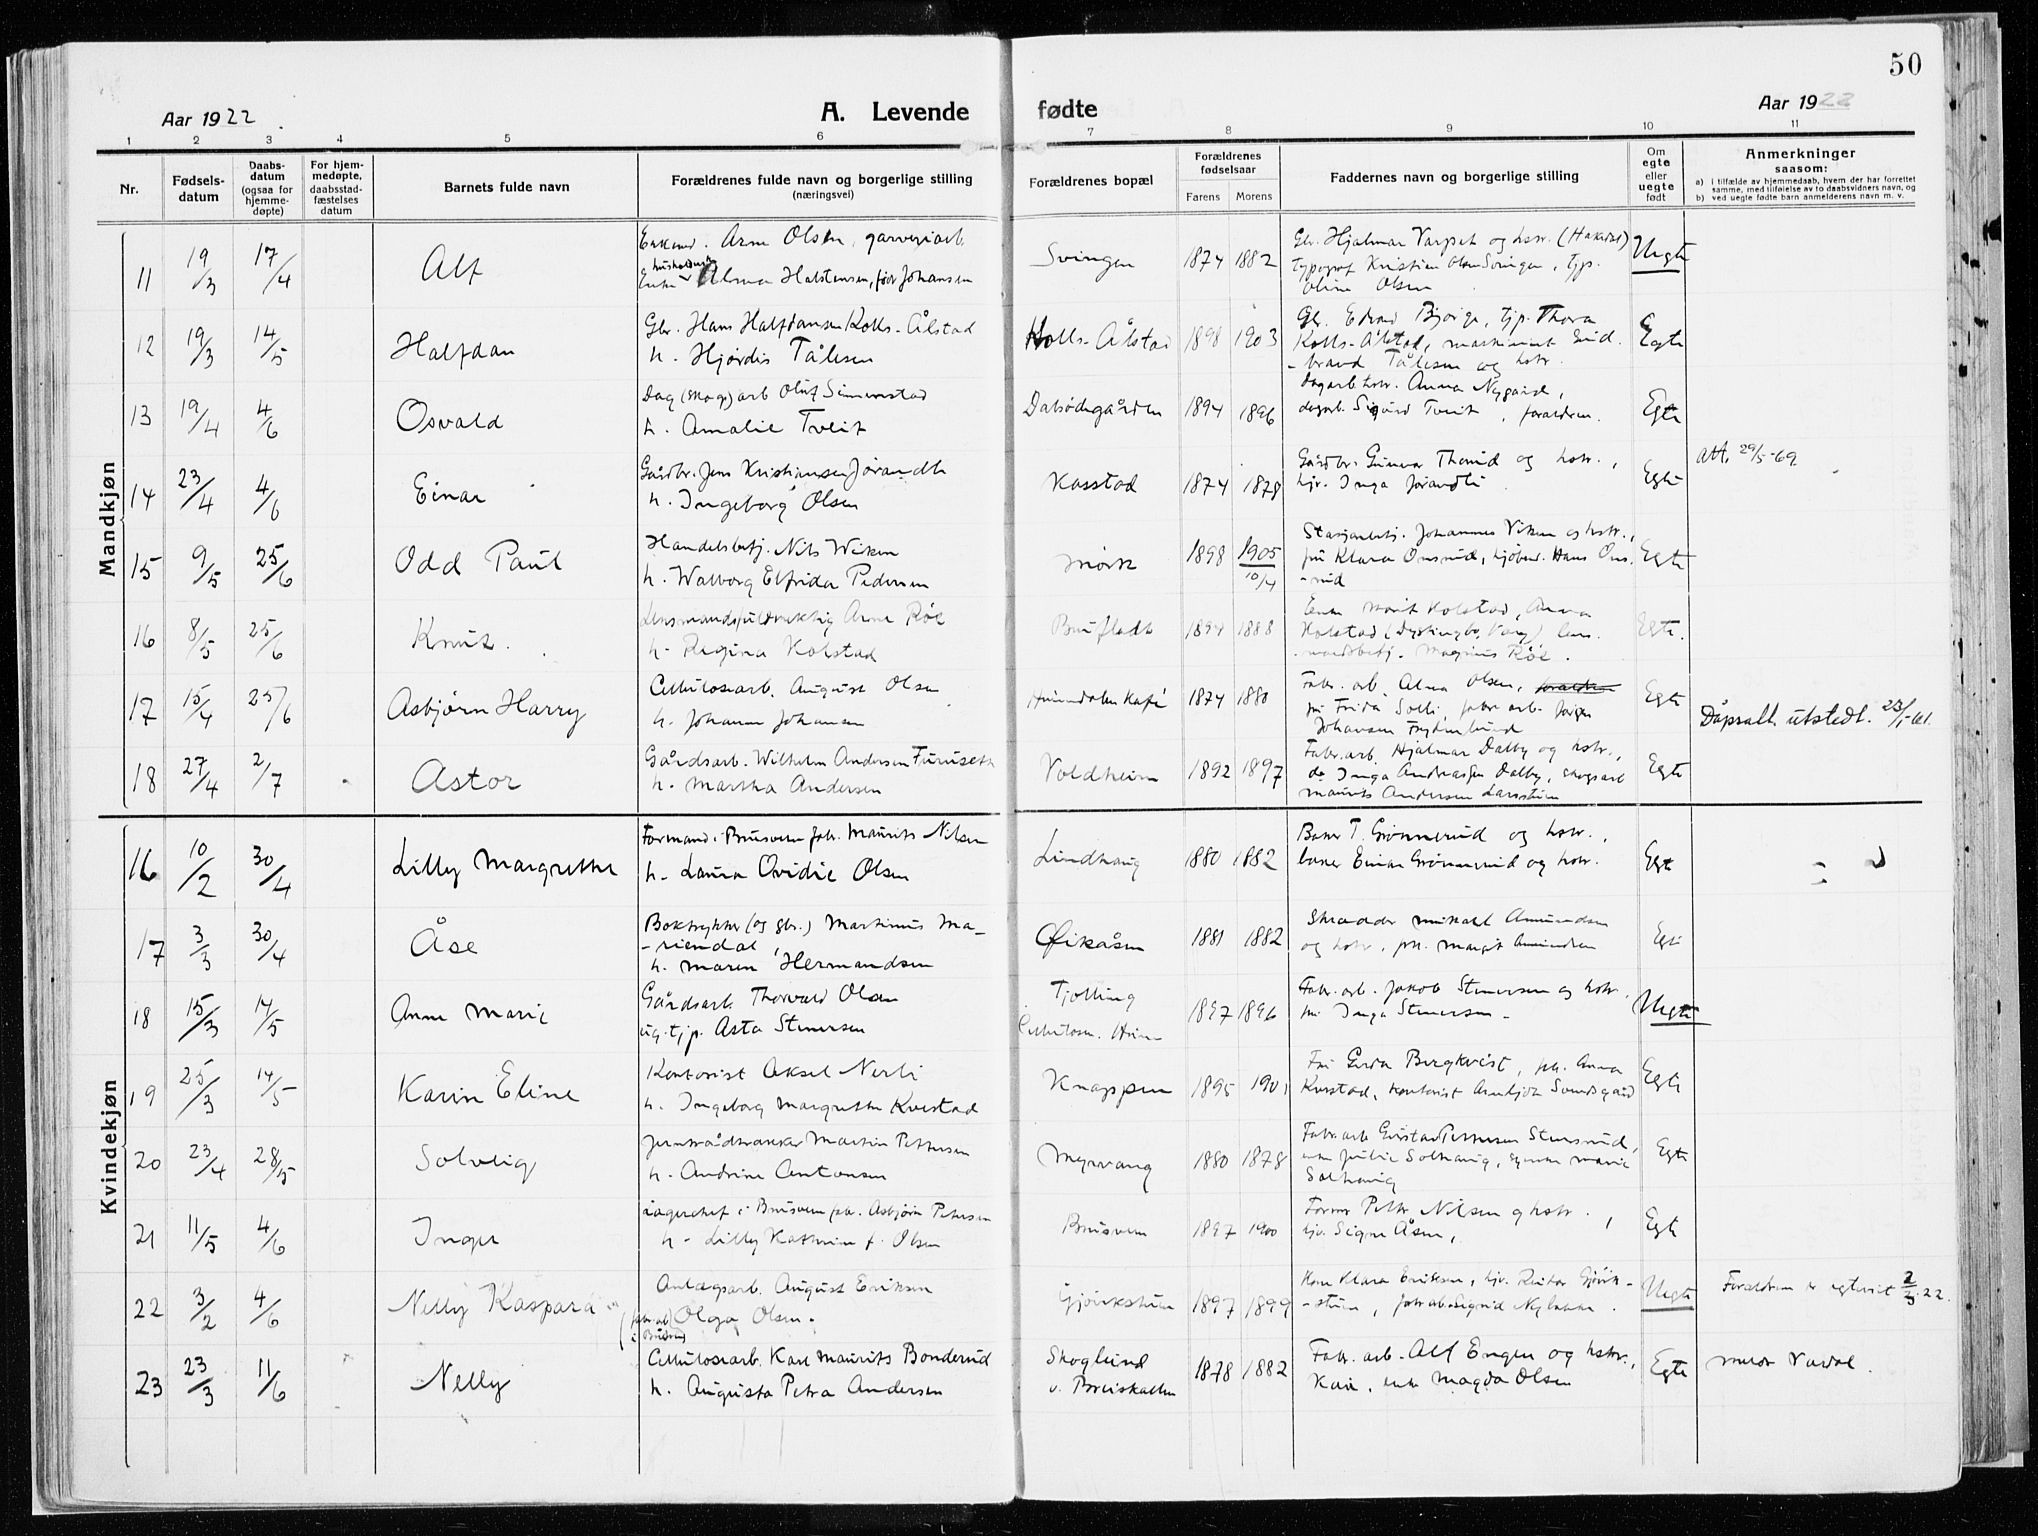 50
Aar 1922.
A. Levende fødte
Aar 1922
1 2 3 4 5 6 7 8 9 10 11
Nr.
Fødsels-
datum
Daabs-
datum
(ogsaa for
hjemme-
døpte)
For hjem-
medøpte,
daabsstad-
fæstelses
datum
Barnets fulde navn
Forældrenes fulde navn og borgerlige stilling
(næringsvei)
Forældrenes bopæl
Forældrenes
fødselsaar
Farens Morens
Faddernes navn og borgerlige stilling
Om
egte
eller
uegte
født
Anmerkninger
saasom:
a) i tilfælde av hjemmedaab, hvem der har forrettet
samme, med tilføielse av to daabsvidners navn, og
b) ved uegte fødte barn anmelderens navn m. v.
Mandkjøn
11 19/3 17/4 Alf
Enkemd. Arne Olsen, garveriarb.
Enke Alma Halstensen, født Johansen
Svingen 1874 1882
Gbr. Hjalmar Varpet og hstr.
typograf Kristian Olsen Svingen, tjp.
Oline Olsen
Uegte
12 19/3 14/5 Halfdan
Gbr. Hans Halfdansen Kolls-Ålstad
h. Hjørdis Tålesen
Kolls-Ålstad 1898 1903
Gbr. Edvard Bjørge, tjp. Thora
Kolls-Ålstad, maskinist Gud-
-brand Tålesen og hstr.
Egte
13 19/4 4/6 Osvald
Dag (Mags) arb Oluf Simenstad
h. Amalie Tveit
Dalsødegården 1894 1896
dagarb.hstr. Anna Nygård,
dagarb. Sigurd Tveit, forældren.
Egte
14 23/4 4/6 Einar
Gårdbr. Jens Kristiansen Jørandli
h. Ingeborg Olsen
Kasstad 1874 1878
Gårdbr. Gunnar Thorud og hstr.,
hjv. Inga Jørandli
Egte
att. 29/5-69.
15 9/5 25/6 Odd Paul
Handelsbetj. Nils Wiken
h. Walborg Elfrida Pedersen
Mørk 1898 1905
10/4
Stasjonbetj. Johannes Viken og hstr.,
frk Klara Onsrud, kjøbmd. Hans Ons-
-rud
Egte
16 8/5 25/6 Knut.
Lensmandsfuldmektig Arne Røe
h. Regina Kolstad
Brufladt 1894 1888
Enke Marit Kolstad, Anna
Kolstad (Dystingbo, Vang) lens-
-mandsbetj. Magnus Røe.
Egte.
17 15/4 25/6 Asbjørn Harry
Cellulosearb. August Olsen
h. Johanne Johansen
Hunndalen Kafé 1874 1880
Fabr. arb. Alma Olsen, forældren
frk Frida Solli, fabr arb. Jørgen
Johansen Frydenlund
Egte
Dåpsatt. utstedt. 23/1-61.
18 27/4 2/7 Astor
Gårdsarb. Wilhelm Andersen Furuseth
h. Martha Andersen
Voldheim 1892 1897
Fabr.arb. Hjalmar Dalby og hstr.,
do Inga Andrassen Dalby, skogsarb
Maurits Andersen Larsstuen
Egte
Kvindekjøn
16 10/2 30/4 Lilly Margrethe
Formand i Brusveen fabr. Maurits Nilsen
h. Laura Ovidie Olsen
Lindhaug 1880 1882
Baker T. Grønnerud og hstr.,
baker Einar Grønnerud og hstr.
Egte
17 3/3 30/4 Åse
Boktrykker (og gbr.) Martinus Ma-
-riendal,
h. Maren Hermandsen
Øikåsen 1881 1882
Skrædder Mikael Amundsen
og hstr., pk. Margit Amundsen
Egte
18 15/3 14/5 Anne Marie
Gårdsarb Thorvald Olsen
ug. tjp. Asta Stenersen
Tjølling
Cellulosen. Hunn
1897 1896
Fabr. arb. Jakob Stenersen og hstr.
frk Inga Stenersen.
Uegte
19 25/3 14/5 Karin Eline
Kontorist Aksel Nerli
h. Ingeborg Margrethe Kvestad
Knappen 1895 1901
Fru Gerda Bergkvist, pk. Anna
Kvestad, kontorist Arnljot Svendsgård
Egte
20 23/4 28/5 Solveig
Jerntrådtrækker Martin Pettersen
h. Andrine Antonsen
Myrvang 1880 1878
Fabr.arb Gustav Pettersen Stensrud,
enke Julie Solhaug, syerske Marie
Solhaug
Egte
21 11/5 4/6 Inger
Lagerchef i Brusveen fabr. Asbjørn Petersen
h. Lilly Kathrine f. Olsen
Brusveen 1897 1900
Former Petter Nilsen og hstr.,
hjv. Signe Åsen,
Egte
22 3/2 4/6 Nelly Kaspara
Anlægsarb. August Eriksen
(fabr.arb i Bråstad) Olga Olsen.
Gjøvikstuen 1897 1899
Kone Klara Eriksen, hjv. Reidar Gjøvik-
-stuen, fabr.arb. Sigrid Nylænne.
Uegte
Forældren er egteviet 2/3.22.
23 23/3 11/6 Nelly
Cellulosearb. Karl Maurits Bonderud
h. Augusta Petra Andersen
Skoglund
v. Breiskallen
1878 1882
Fabr. arb. Alf Engen og hstr.,
Kari, enke Magda Olsen
Egte
Mor Vardal.